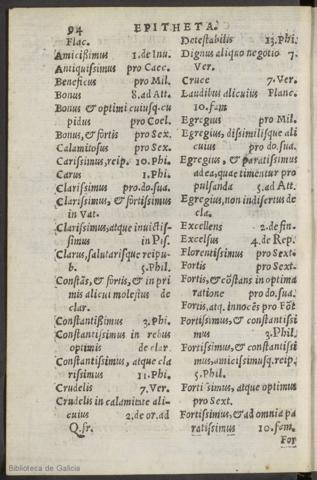 94 EPITHETA.
Flac.
Amicißimus 1.de Inu.
Antiquissimus pro Caec.
Beneficus pro Mil.
Bonus 8.ad Att.
Bonus & optimi cuiusq.cu
pidus pro Coel.
Bonus, & fortis pro Sex.
Calamitosus pro Sex.
Carissimus, reip. 10.Phi.
Carus 1.Phi.
Clarissimus pro.do.sua.
Clarissimus, & fortissimus
in Vat.
Clarissimus, atque inuictis-
simus in Pis.
Clarus, salutarisque reipu-
b. 5.Phil.
Constãs, & fortis, & in pri
mis alicui molestus de
clar.
Constantißimus 3.Phi.
Constantissimus in rebus
optimis de clar.
Constantissimus, atque cla
rissimus 11.Phi.
Crudelis 7.Ver.
Crudelis in calamitate ali-
cuius 2.de or.ad
Q.fr.
Detestabilis 13.Phi.
Dignus aliquo negotio 7.
Ver.
Cruce 7.Ver.
Laudibus alicuius Planc.
10.fam
Egregius pro Mil.
Egregius, dissimilisque ali
cuius pro do.sua.
Egregius, & paratissimus
ad ea, quae timentur pro
pulsanda 5.ad Att.
Egregius, non indisertus de
cla.
Excellens 2.de fin.
Excelsus 4.de Rep.
Florentissimus pro Sext.
Fortis pro Sext.
Fortis, & cõstans in optima
ratione pro do.sua.
Fortis, atq. innocẽs pro Fõt
Fortissimus, & constantissi
mus 3.Phil.
Fortissimus, & constantissi
mus, amicissimusq. reip.
5.Phil.
Fortissimus, atque optimus
pro Sext.
Fortissimus, & ad omnia pa
ratissimus 10.fam.
For
Biblioteca de Galicia